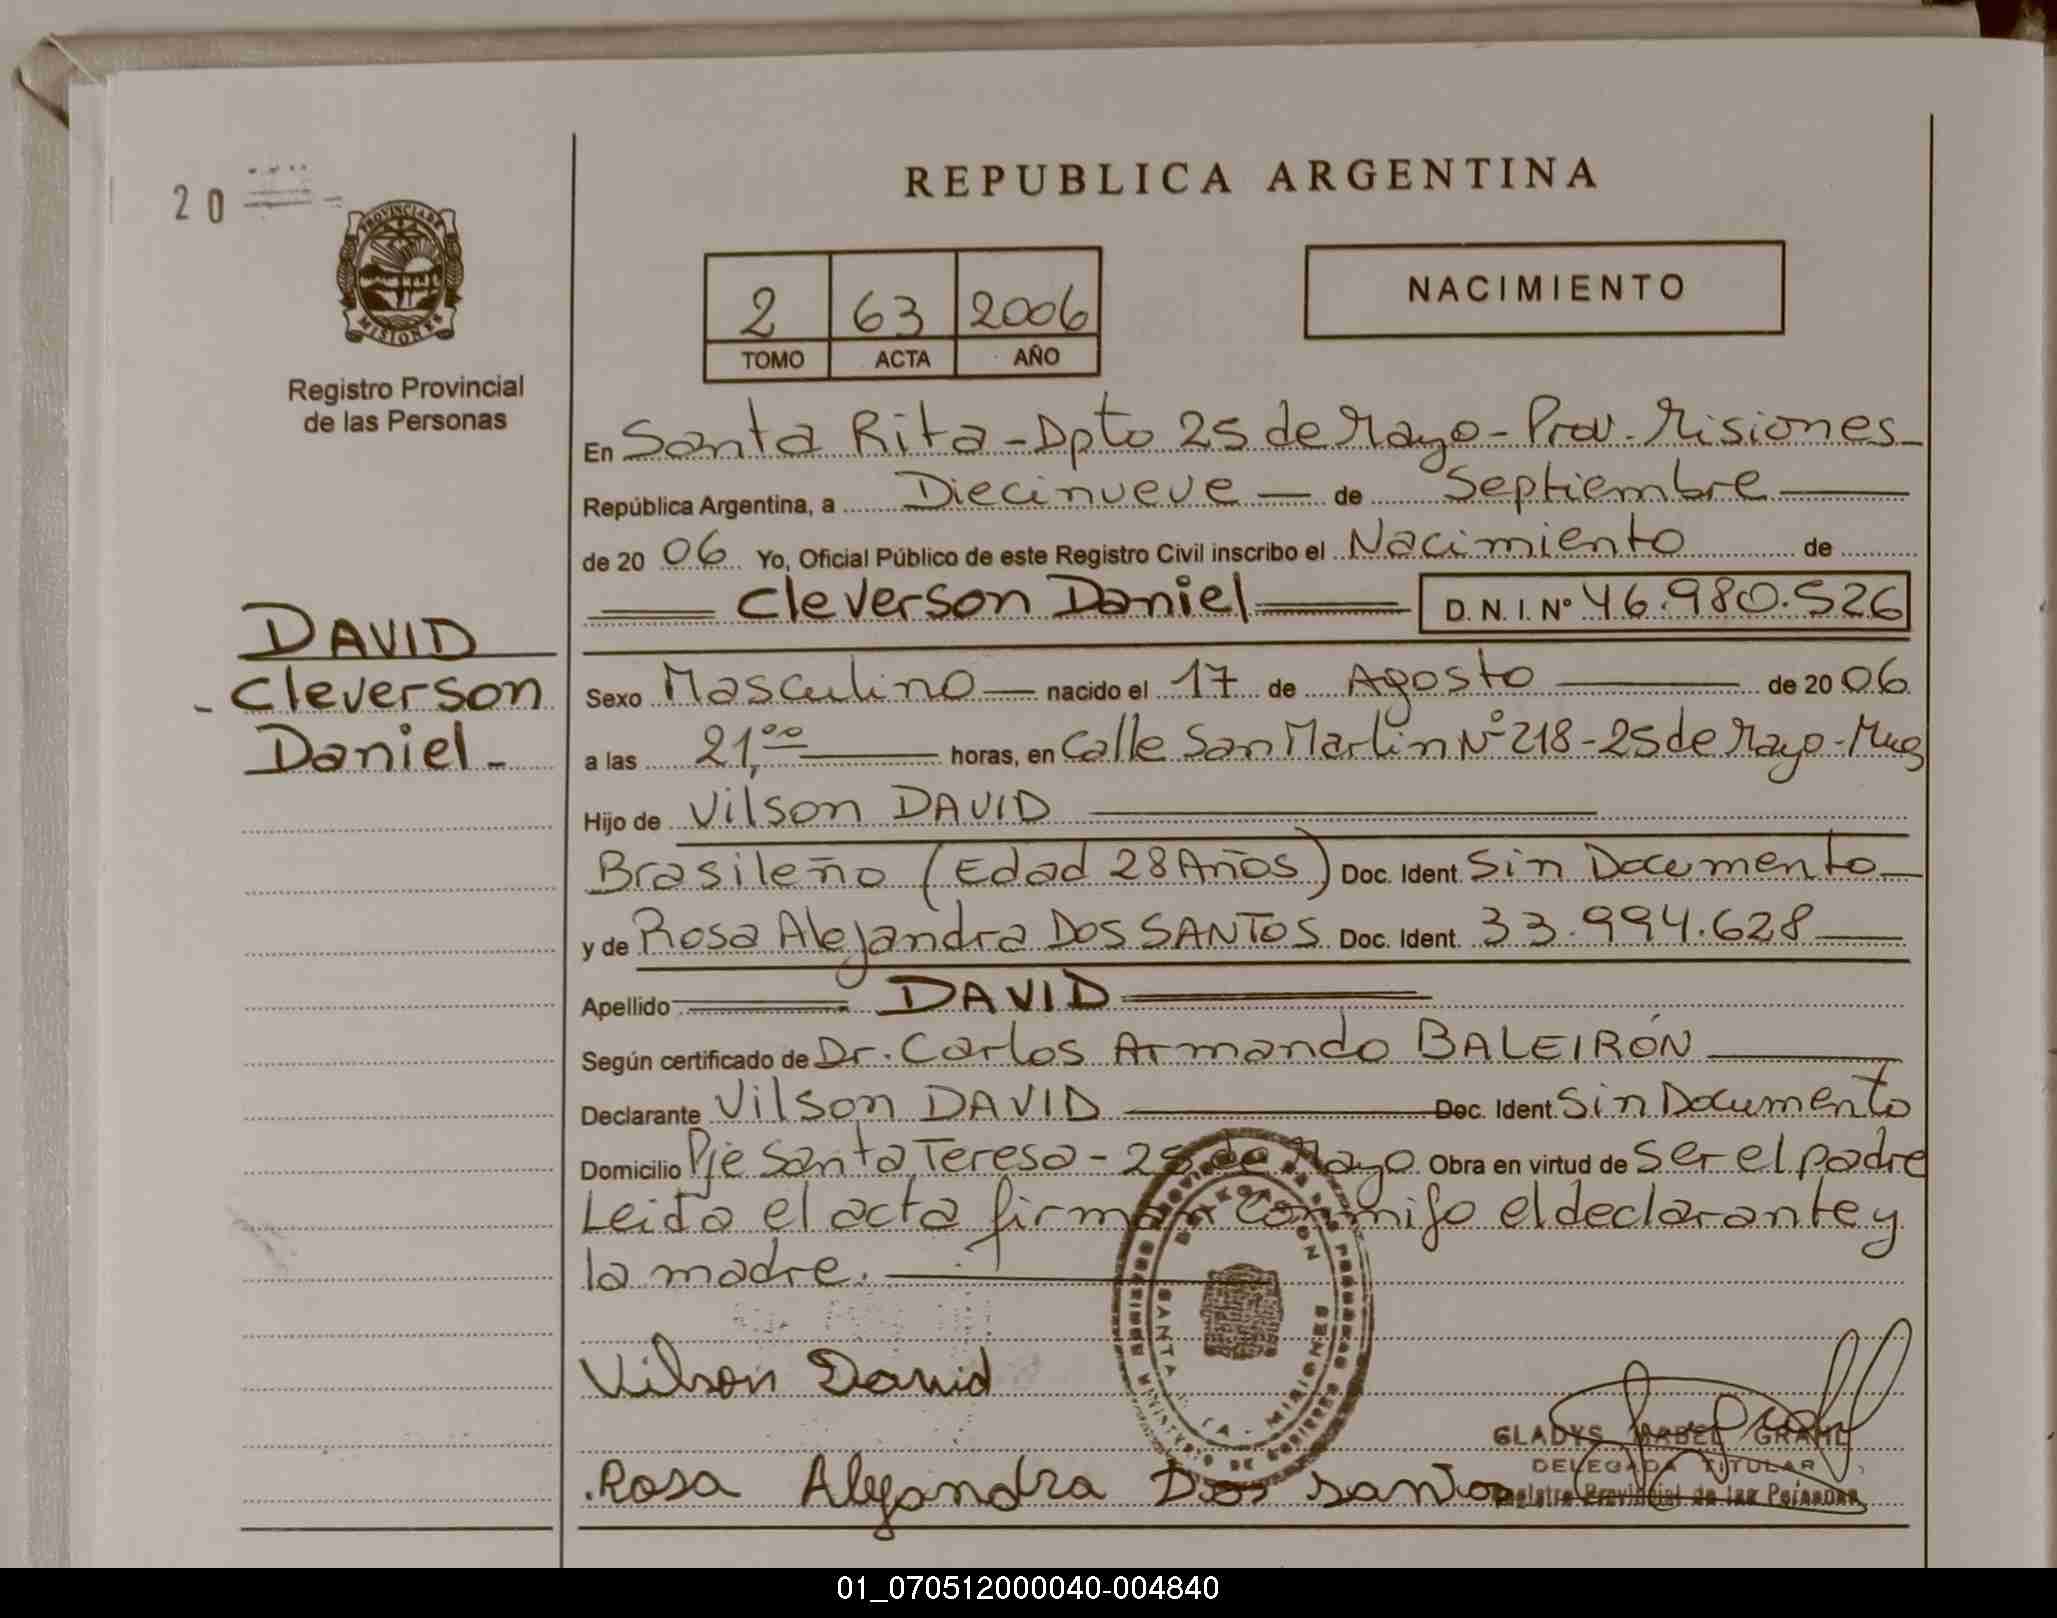 20
PROVINCIA DE
MISIONES
Registro Provincial
de las Personas
DAVID
- Cleverson
Daniel -
REPUBLICA ARGENTINA
2 63 2006
TOMO ACTA AÑO
NACIMIENTO
En Santa Rita - Dpto 25 de Mayo - Prov. Misiones -
República Argentina, a Diecinueve — de Septiembre —
de 20 06 Yo, Oficial Público de este Registro Civil inscribo el Nacimiento de
Cleverson Daniel D. N. I. Nº 46.980.526
Sexo Masculino — nacido el 17 de Agosto — de 20 06
a las 21,00 — horas, en Calle San Martin Nº 218 - 25 de Mayo - Mnes
Hijo de Vilson DAVID —
Brasileño (Edad 28 Años) Doc. Ident. Sin Documento —
y de Rosa Alejandra DOS SANTOS Doc. Ident. 33.994.628 —
Apellido DAVID
Según certificado de Dr. Carlos Armando BALEIRÓN —
Declarante Vilson DAVID — Doc. Ident. Sin Documento
Domicilio Pje Santa Teresa - 25 de Mayo Obra en virtud de Ser el padre
Leida el acta firman conmigo el declarante y
la madre. —
Vilson David
Rosa Alejandra Dos Santos
GLADYS MABEL GRAHL
DELEGADA TITULAR
Registro Provincial de las Personas
DELEGACION
SANTA RITA - MISIONES
01_070512000040-004840